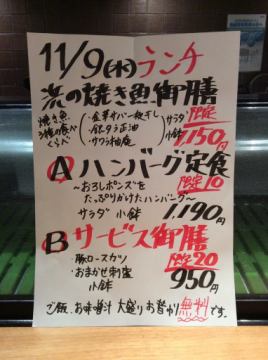 11/9(水)ランチ
浜の焼き魚御膳
焼き魚 3種の食べくらべ
・金華サバ一夜干し
・銀タラ正油
・サワラ柚庵
サラダ 小鉢
限定
1,150円
A ハンバーグ定食
限定10
〜おろしポンズを
たっぷりかけたハンバーグ〜
サラダ 小鉢 1,190円
B サービス御膳
限定20
豚ロースカツ
おまかせ刺盛
小鉢
950円
ご飯、お味噌汁 大盛り お替わり 無料です。